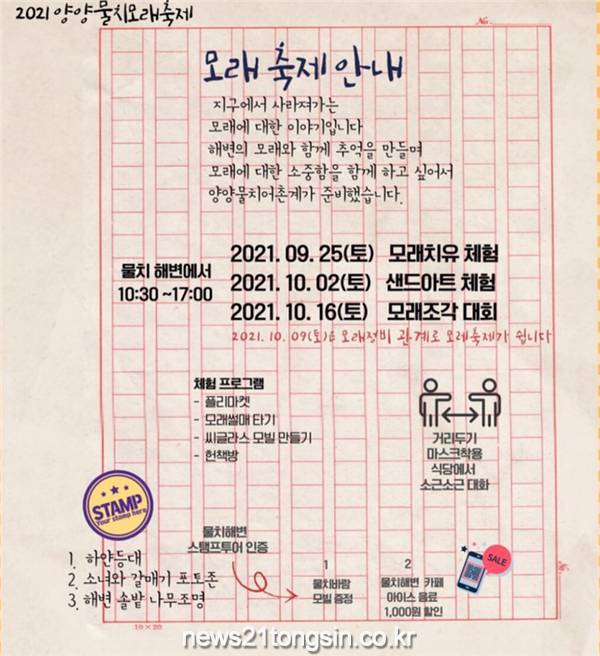 2021 양양물치모래축제
No.
모래 축제 안내
지구에서 사라져가는
모래에 대한 이야기입니다
해변의 모래와 함께 추억을 만들며
모래에 대한 소중함을 함께 하고 싶어서
양양물치어촌계가 준비했습니다.
물치 해변에서
10:30 ~17:00
2021. 09. 25(토) 모래치유 체험
2021. 10. 02(토) 샌드아트 체험
2021. 10. 16(토) 모래조각 대회
2021. 10. 09(토)은 모래정비 관계로 모래축제가 쉽니다
체험 프로그램
- 플리마켓
- 모래썰매 타기
- 씨글라스 모빌 만들기
- 헌책방
거리두기
마스크착용
식당에서
소근소근 대화
STAMP
Your stamp here
1. 하얀등대
2. 소녀와 갈매기 포토존
3. 해변 솔밭 나무조명
물치해변
스탬프투어 인증
1
물치바람
모빌 증정
2
물치해변 카페
아이스 음료
1,000원 할인
SALE
10×20
news21tongsin.co.kr